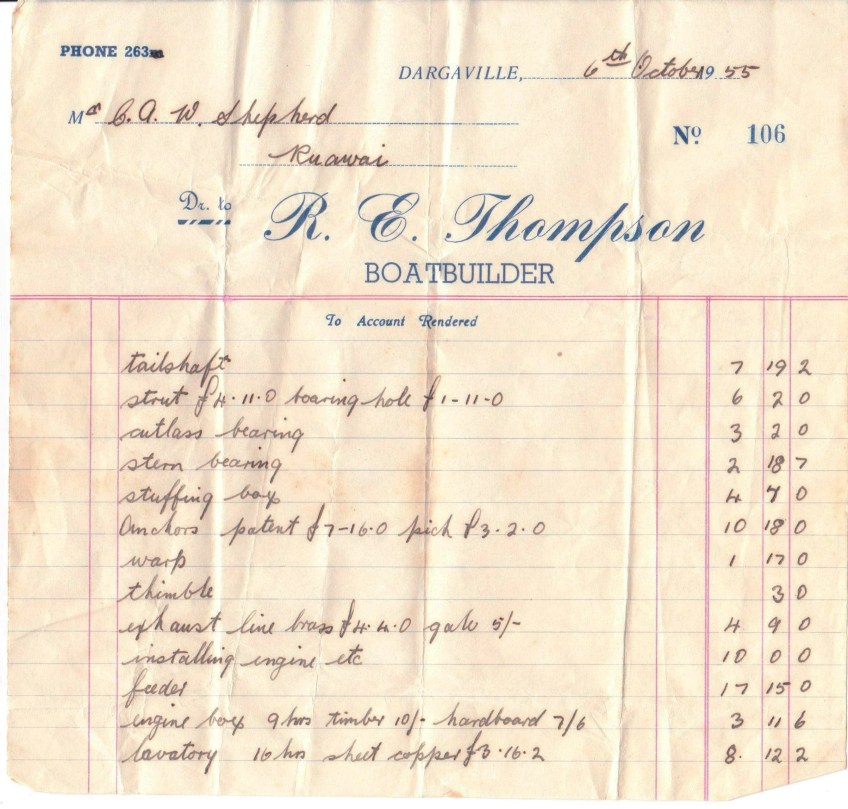 PHONE 263m
DARGAVILLE, 6th October 1955
Mr C. A. W. Shepherd
Ruawai
No 106
Dr. to
R. E. Thompson
BOATBUILDER
To Account Rendered
tailshaft 7 19 2
strut £4.11.0 boaring hole £1-11-0 6 2 0
cutlass bearing 3 2 0
stern bearing 2 18 7
stuffing box 4 7 0
Anchors patent £7-16.0 pick £3.2.0 10 18 0
warp 1 17 0
thimble 3 0
exhaust line brass £4.4.0 galv 5/- 4 9 0
installing engine etc 10 0 0
feeder 17 15 0
engine box 9 hrs timber 10/- hardboard 7/6 3 11 6
lavatory 16 hrs sheet copper £3.16.2 8. 12 2